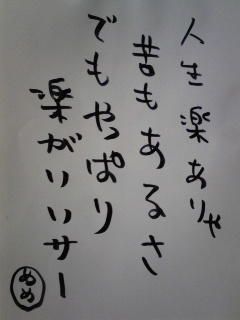 人生楽ありゃ
苦もあるさ
でもやっぱり
楽がいいサー
ぬめ